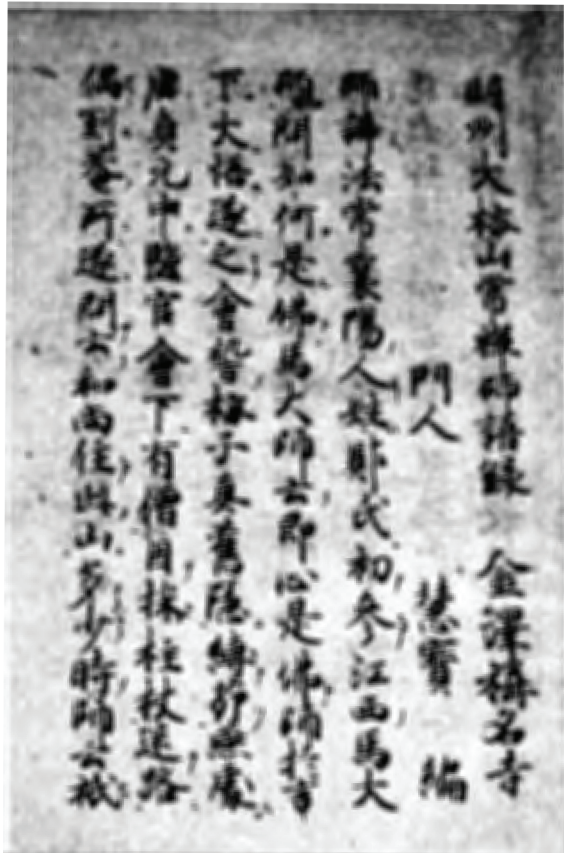 明州大梅山常禪師語録 金澤稱名寺
門人 慧寶 編
師諱法常襄陽人姓鄭氏初參江西馬大
師問如何是佛馬大師云即心是佛師於言
下大悟遂之會稽梅子真舊隱縛茆燕處
唐貞元中鹽官會下有僧因採柱杖迷路
偶到菴所遂問云和尚住此山多少時師云祇